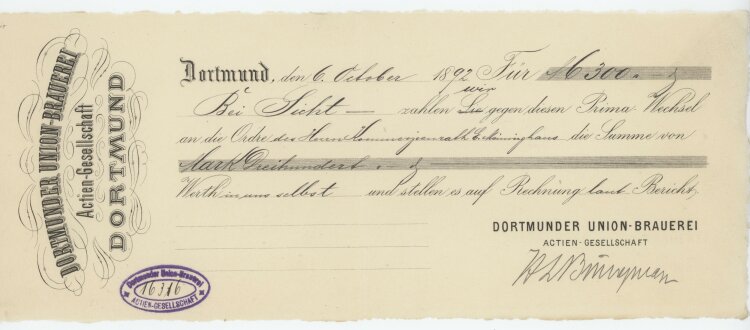 DORTMUNDER UNION-BRAUEREI
Actien-Gesellschaft
DORTMUND
Dortmund, den 6. October 1892 Für M 300.-
Bei Sicht — zahlen Sie wir gegen diesen Prima Wechsel
an die Ordre des Herrn Commerzienrath E. Küninghaus die Summe von
Mark Dreihundert.-
Werth in uns selbst und stellen es auf Rechnung laut Bericht,
DORTMUNDER UNION-BRAUEREI
ACTIEN-GESELLSCHAFT
Dortmunder Union-Brauerei
16316
ACTIEN-GESELLSCHAFT